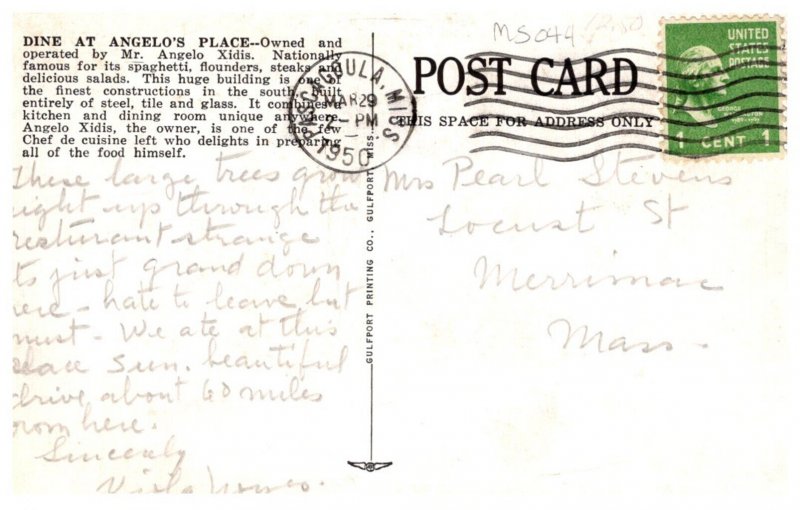 DINE AT ANGELO'S PLACE--Owned and
operated by Mr. Angelo Xidis. Nationally
famous for its spaghetti, flounders, steaks and
delicious salads. This huge building is one of
the finest constructions in the south, built
entirely of steel, tile and glass. It combines a
kitchen and dining room unique anywhere.
Angelo Xidis, the owner, is one of the few
Chef de cuisine left who delights in preparing
all of the food himself.
These large trees grow
right up through the
resturant strange
ts just grand down
ere - hate to leave but
must - We ate at this
place Sun. beautiful
drive about 60 miles
from here.
Sincerely
GULFPORT PRINTING CO., GULFPORT, MISS.
PASCAGOULA, MISS
MAR 29
2-PM
1950
MS044
POST CARD
THIS SPACE FOR ADDRESS ONLY
UNITED
STATES
POSTAGE
GEORGE
WASHINGTON
1789-1797
1 CENT 1
Mrs Pearl Stevens
Locust St
Merrimac
Mass.